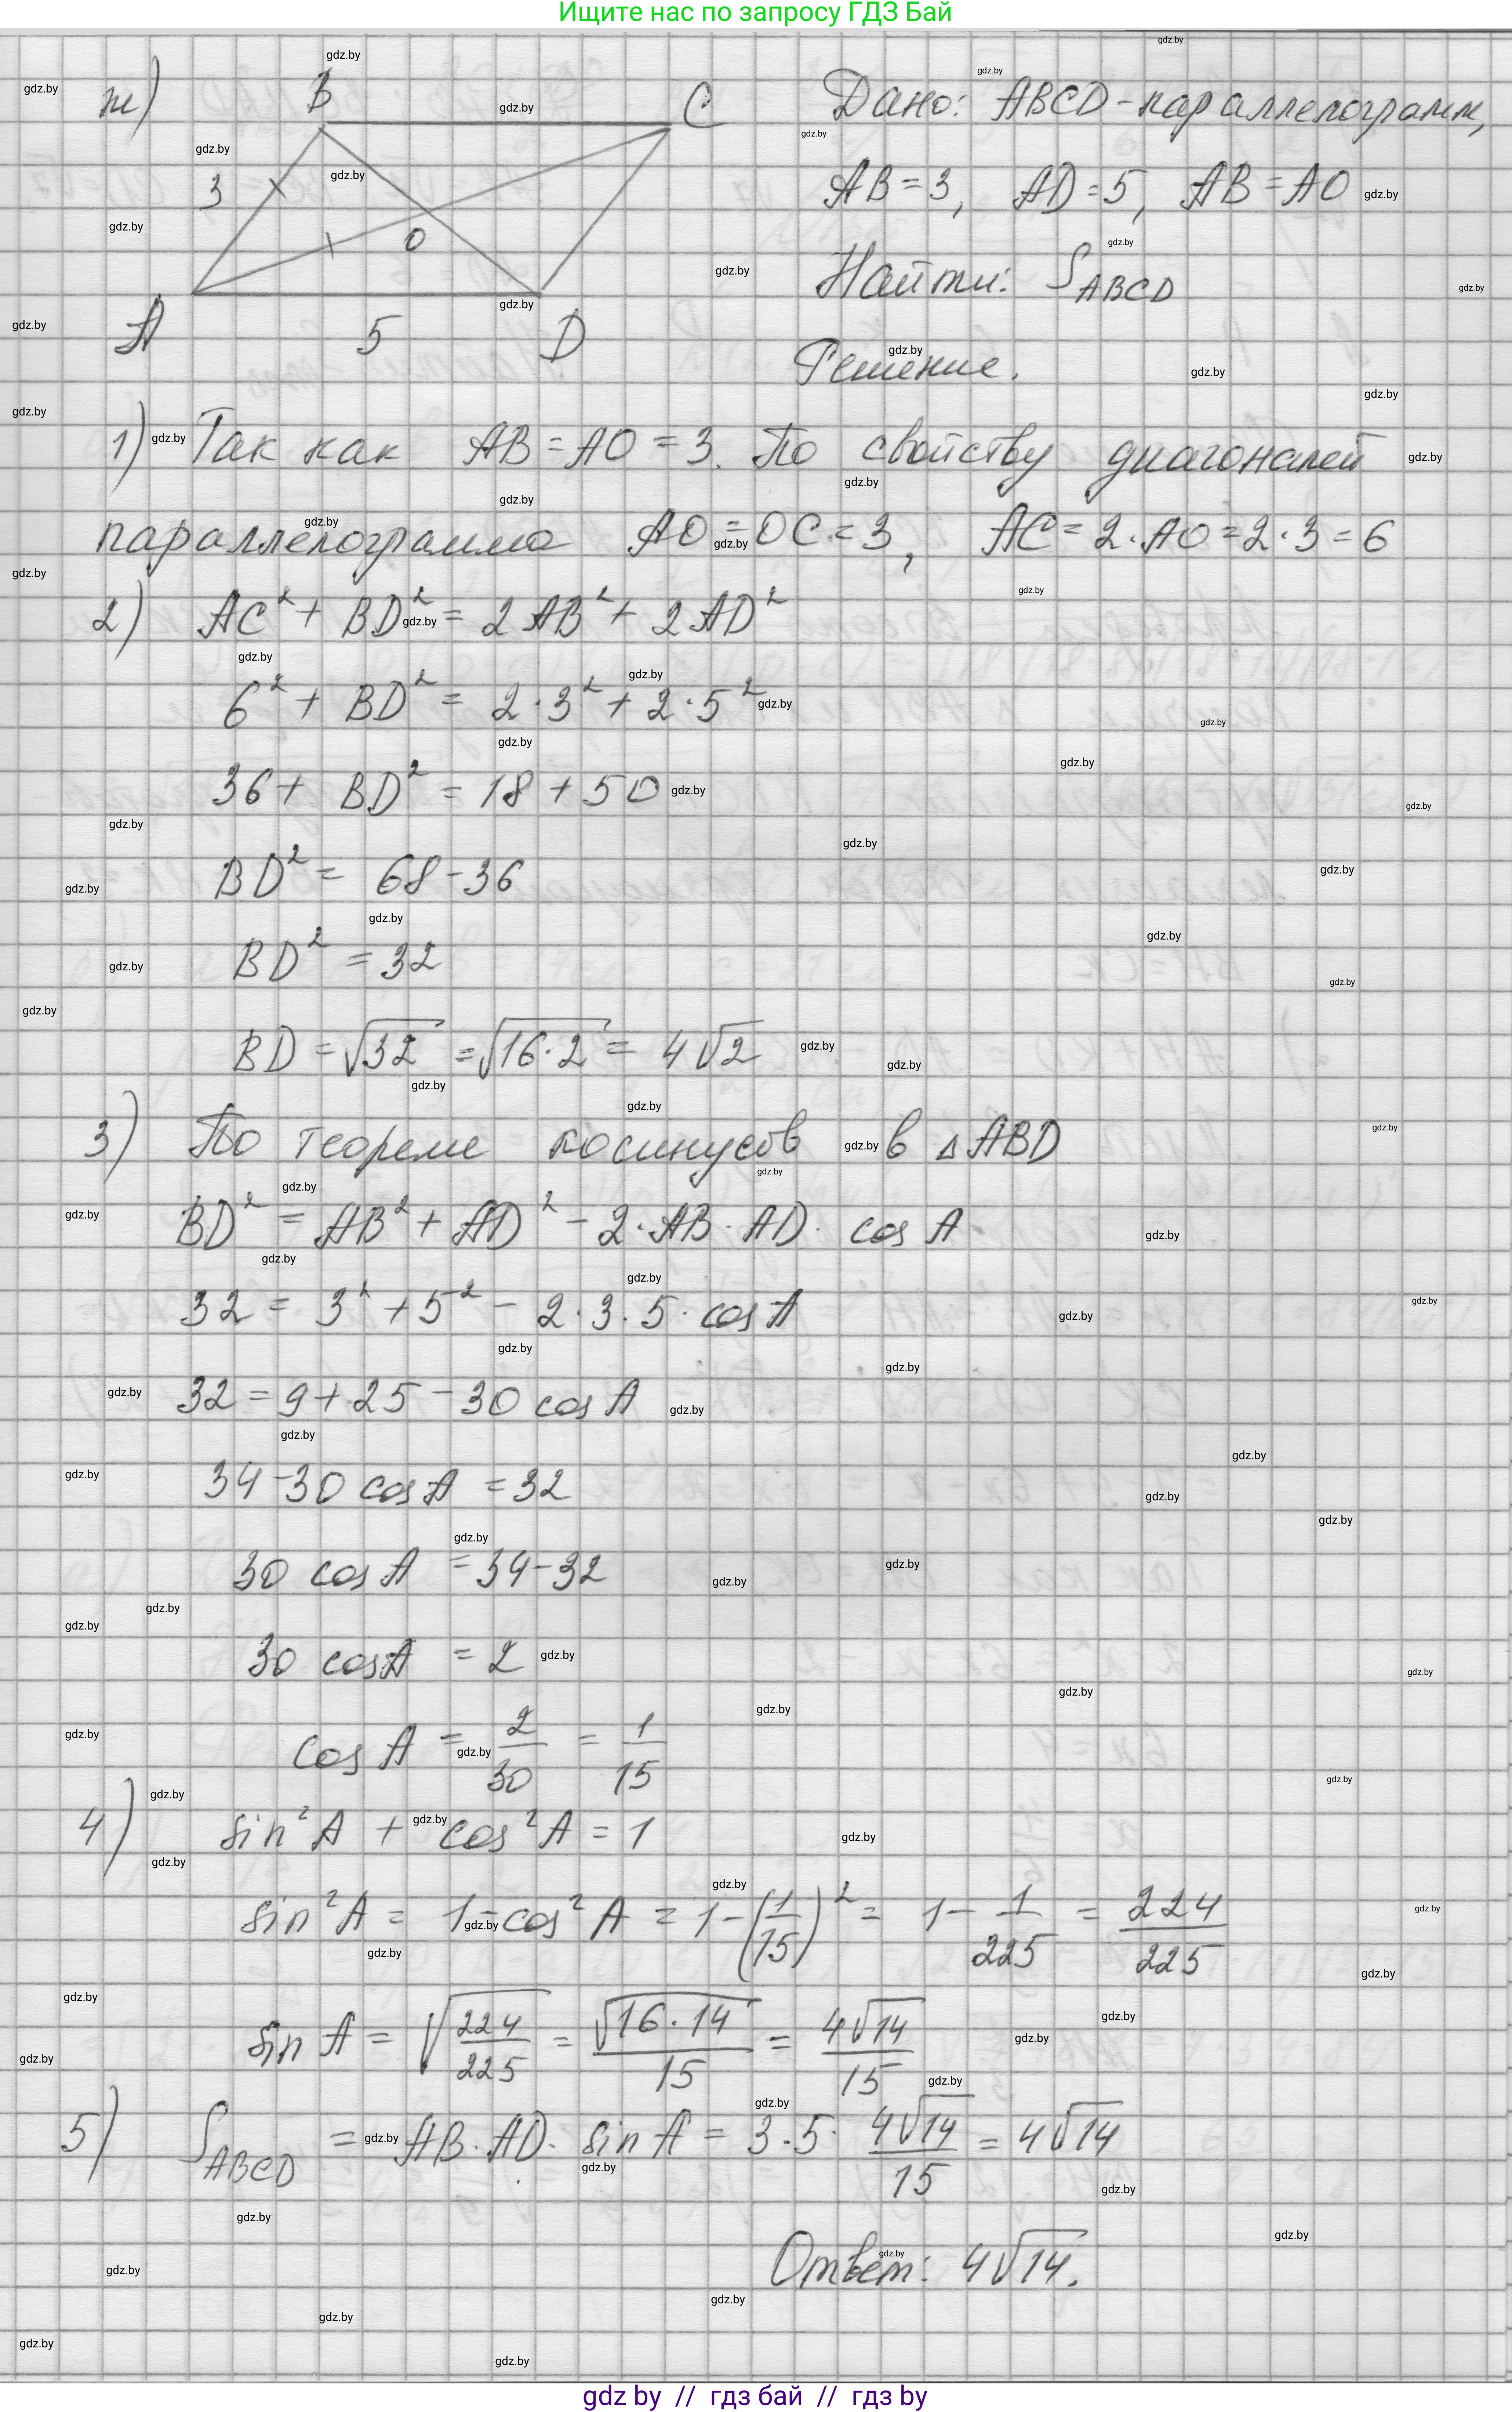 Ищите нас по запросу ГДЗ Бай
ж)
B
C
3
O
A
5
D
Дано: ABCD - параллелограмм,
AB = 3, AD = 5, AB = AO
Найти: S_ABCD
Решение.
1) Так как AB = AO = 3. По свойству диагоналей
параллелограмма AO = OC = 3, AC = 2·AO = 2·3 = 6
2) AC² + BD² = 2AB² + 2AD²
6² + BD² = 2·3² + 2·5²
36 + BD² = 18 + 50
BD² = 68 - 36
BD² = 32
BD = √32 = √16·2 = 4√2
3) По теореме косинусов в △ABD
BD² = AB² + AD² - 2·AB·AD·cos A
32 = 3² + 5² - 2·3·5·cos A
32 = 9 + 25 - 30 cos A
34 - 30 cos A = 32
30 cos A = 34 - 32
30 cos A = 2
cos A = 2/30 = 1/15
4) sin²A + cos²A = 1
sin²A = 1 - cos²A = 1 - (1/15)² = 1 - 1/225 = 224/225
sin A = √224/225 = √16·14/15 = 4√14/15
5) S_ABCD = AB·AD·sin A = 3·5·4√14/15 = 4√14
Ответ: 4√14.
gdz by // гдз бай // гдз by